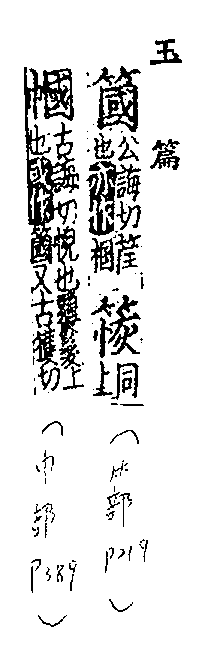 玉篇
簂公誨切筐
也亦作槶 簇同上
(竹部 P219)
幗古誨切帨也覆髮上
也或作簂又古獲切
(巾部 P389)